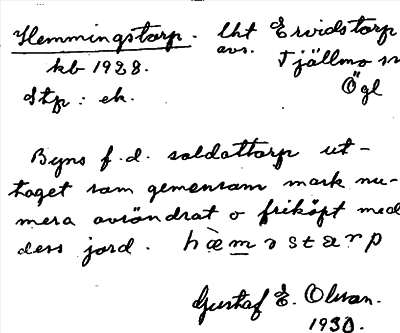 Hemmingstorp. Uht Ervidstorp
avs. Tjällmo sn
kb 1928. Ögl
Stp: ek.
Byns f.d. soldattorp ut-
taget som gemensam mark nu-
mera avsöndrat o friköpt med
dess jord. hæməstarp
Gustaf E. Olsson.
1930.